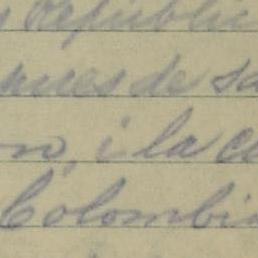 Republic
ques de sa
on, i la cu
Colombia